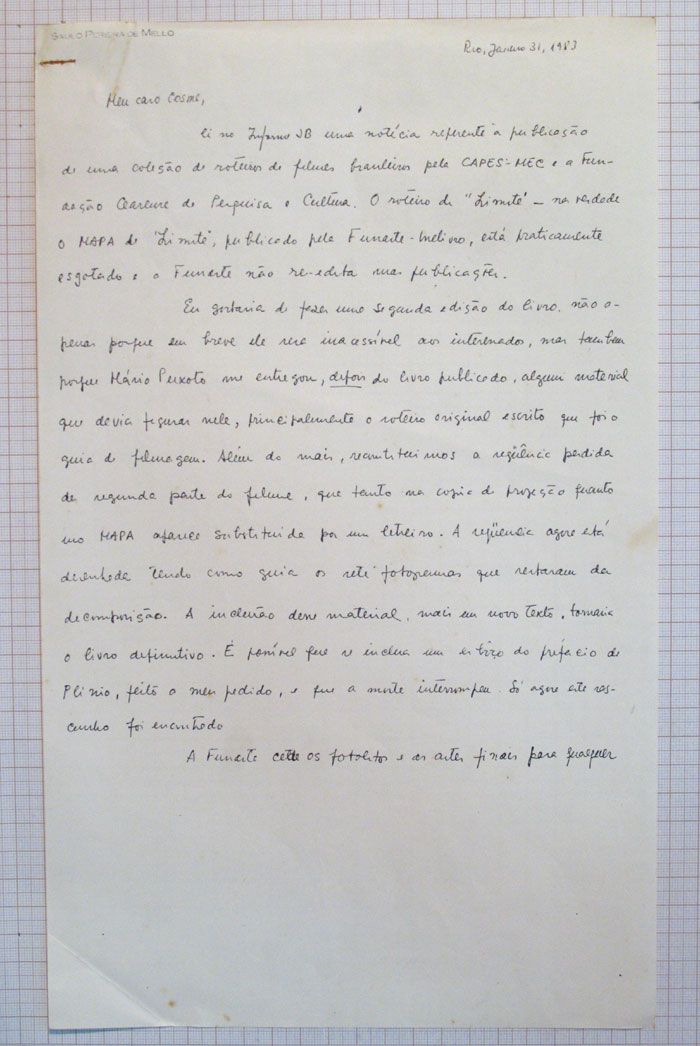 SAULO PEREIRA DE MELLO
Rio, Janeiro 31, 1983
Meu caro Cosme,
li no Informe JB uma notícia referente à publicação
de uma coleção de roteiros de filmes brasileiros pela CAPES-MEC e a Fun-
dação Cearense de Pesquisa e Cultura. O roteiro de "Limite" – na verdade
o MAPA de "Limite", publicado pela Funarte-Inelivro, está praticamente
esgotado e a Funarte não re-edita suas publicações.
Eu gostaria de fazer uma segunda edição do livro. não a-
penas porque em breve ele será inacessível aos interessados, mas também
porque Mário Peixoto me entregou, depois do livro publicado, algum material
que devia figurar nele, principalmente o roteiro original escrito que foi o
guia de filmagem. Além do mais, reconstituimos a seqüência perdida
da segunda parte do filme, que tanto na copia de projeção quanto
no MAPA aparece substituida por um letreiro. A seqüencia agora está
desenhada tendo como guia os sete fotogramas que restaram da
decomposição. A inclusão desse material, mais um novo texto, tornaria
o livro definitivo. É possível que se inclua um esboço do prefácio de
Plinio, feito a meu pedido, e que a morte interrompeu. Só agora este ras-
cunho foi encontrado
A Funarte cede os fotolitos e as artes finais para qualquer